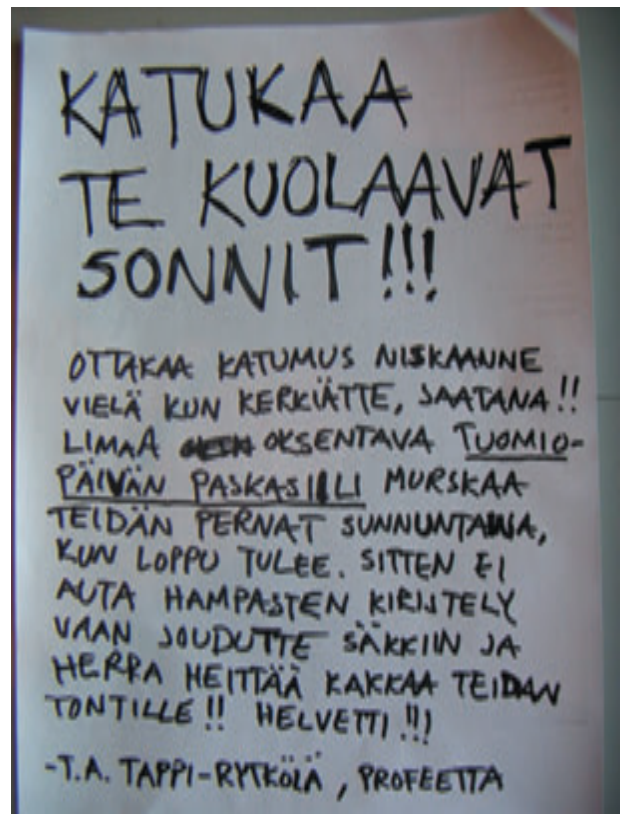 KATUKAA
TE KUOLAAVAT
SONNIT!!!
OTTAKAA KATUMUS NISKAANNE
VIELÄ KUN KERKIÄTTE, SAATANA!!
LIMAA OKSENTAVA TUOMIO-
PÄIVÄN PASKASILLI MURSKAA
TEIDÄN PERNAT SUNNUNTAINA,
KUN LOPPU TULEE. SITTEN EI
AUTA HAMPASTEN KIRISTELY
VAAN JOUDUTTE SÄKKIIN JA
HERRA HEITTÄÄ KAKKAA TEIDAN
TONTILLE!! HELVETTI!!!
-T.A. TAPPI-RYTKÖLÄ, PROFEETTA